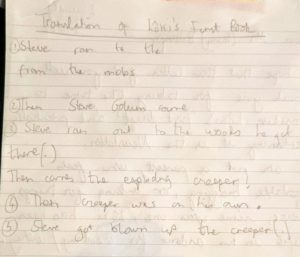 Translation of Loki's First Book
① Steve ran to the
from the mobs
② Then Steve Golem came
③ Steve ran out to the woods he got
there(.)
Then comes the exploding creeper!
④ Then creeper was on his own.
⑤ Steve got blown up the creeper(.)